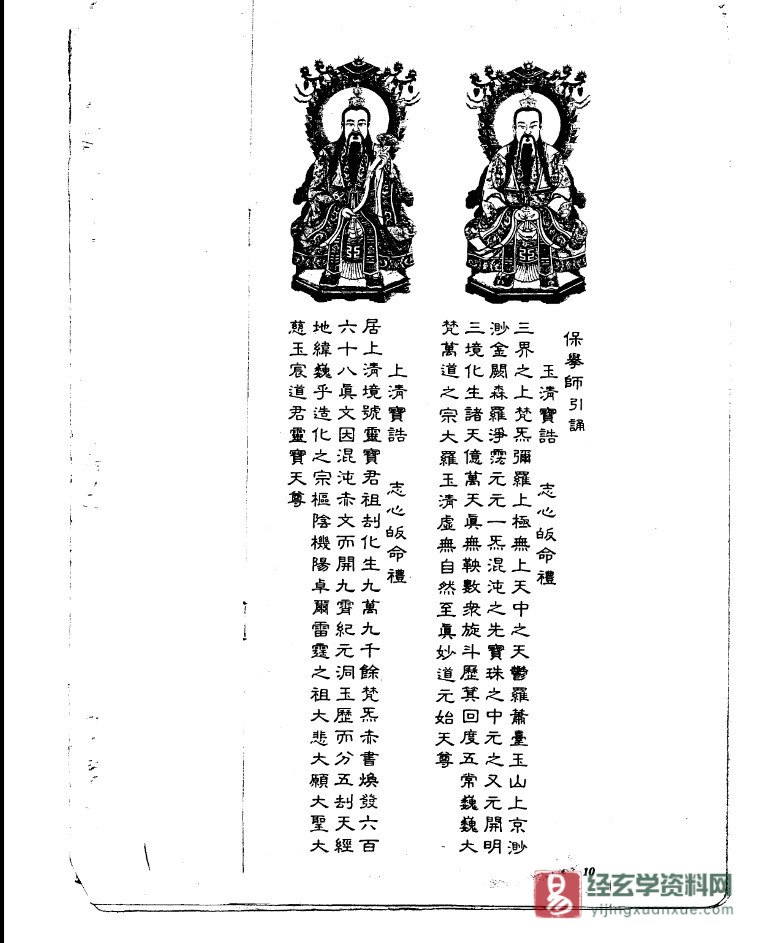 保舉師引誦
玉清寶誥 志心皈命禮
三界之上梵炁彌羅上極無上天中之天鬱羅蕭臺玉山上京渺
渺金闕森羅淨霐元元一炁混沌之先寶珠之中元之又元開明
三境化生諸天億萬天眞無鞅數衆旋斗歷萁回度五常巍巍大
梵萬道之宗大羅玉清虛無自然至眞妙道元始天尊
上清寶誥 志心皈命禮
居上清境號靈寶君祖刦化生九萬九千餘梵炁赤書煥發六百
六十八眞文因混沌赤文而開九霄紀元洞玉歷而分五刦天經
地緯巍乎造化之宗樞陰機陽卓爾雷霆之祖大悲大願大聖大
慈玉宸道君靈寶天尊
10
易
经玄学资料网
yijingxuanxue.com